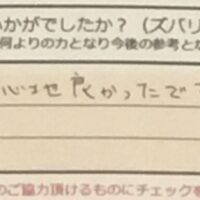 いかがでしたか？（ズバリ
何よりの力となり今後の参考とな
心はせ良かったで
のご協力頂けるものにチェックを